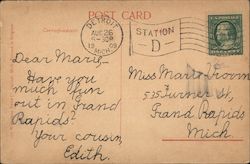 POST CARD
DETROIT
AUG 26
MICH.
STATION
D
Dear Marie—
Have you
much fun
out in Grand
Rapids?
Your cousin,
Edith.
Miss
535 Turner St,
Grand Rapids
Mich.